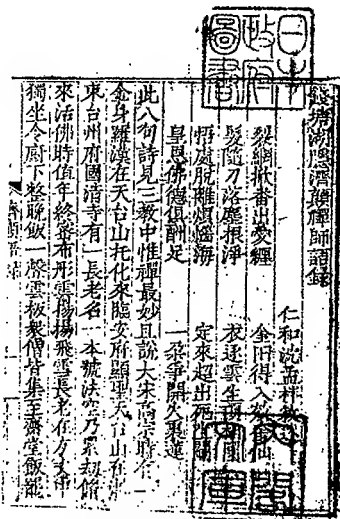 錢塘湖隱濟顛禪師語錄
仁和沈孟柈敘
裂網掀番出愛纏　金田得入效金仙
髮隨刀落塵根淨　衣逐雲生
悟處脫離煩惱海　定來超出死生關
皇恩佛德俱酬足　一朶爭開火裏蓮
此八句詩見三教中惟禪最妙且說大宋高宗時今一
金身羅漢在天台山托化來臨安府顯聖天台山在浙
東台州府國清寺有一長老名一本號法空乃累劫脩
來活佛時值年終密布彤雲揚揚飛雪長老在方丈中
獨坐令厨下整晚飯一聲雲板衆僧皆集至齋堂飯罷
日本
政府
圖書
內閣
文庫